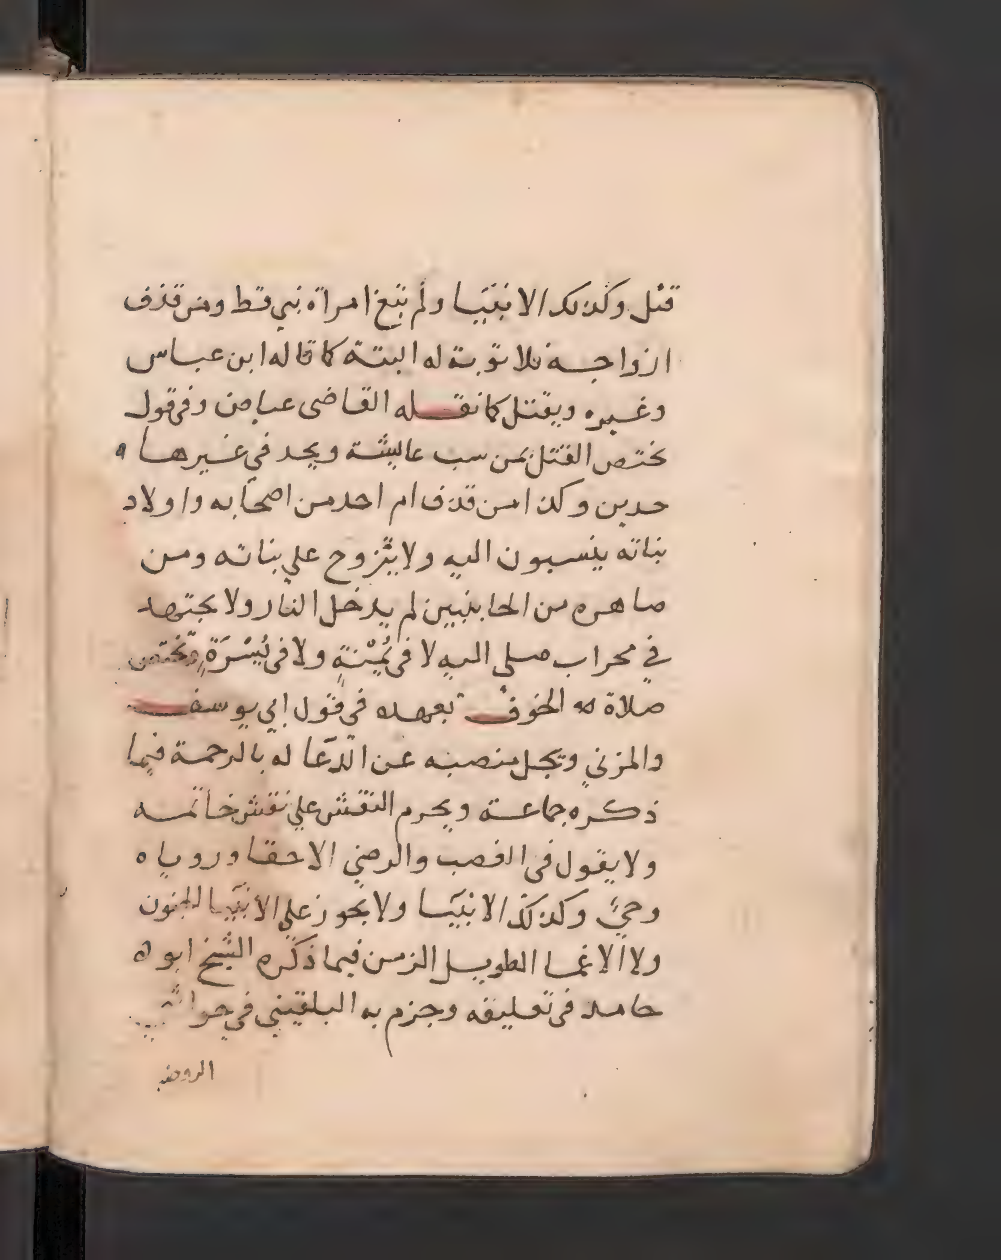 قتل وكذلك الانبيا ولم تبغ امراة نبي قط ومن قذف
ازواجه فلا توبة له البتة كما قاله ابن عباس
وغيره ويقتل كما نقله القاضى عياض وفي قول
يختص القتل بمن سب عايشة ويحد في غيرها
حدين وكذا من قذف ام احد من اصحابه واولاد
بناته ينسبون اليه ولا يتزوج علي بناته ومن
صاهره من الجانبين لم يدخل النار ولا يجتهد
في محراب صلى اليه لا في يُمْنَةٍ ولا في يُسْرَةٍ وتختص
صلاة الخوف بعهده في قول ابي يوسف
والمزني وتجل منصبه عن الدعا له بالرحمة فيما
ذكره جماعة ويحرم النقش علي نقش خاتمه
ولا يقول في الغضب والرضي الا حقا ورويا ه
وحيٌ وكذلك الانبيا ولا يجوز علي الانبيا الجنون
ولا الاغما الطويل الزمن فيما ذكره الشيخ ابو
حامد في تعليقه وجزم به البلقيني في حواشي
الروضة